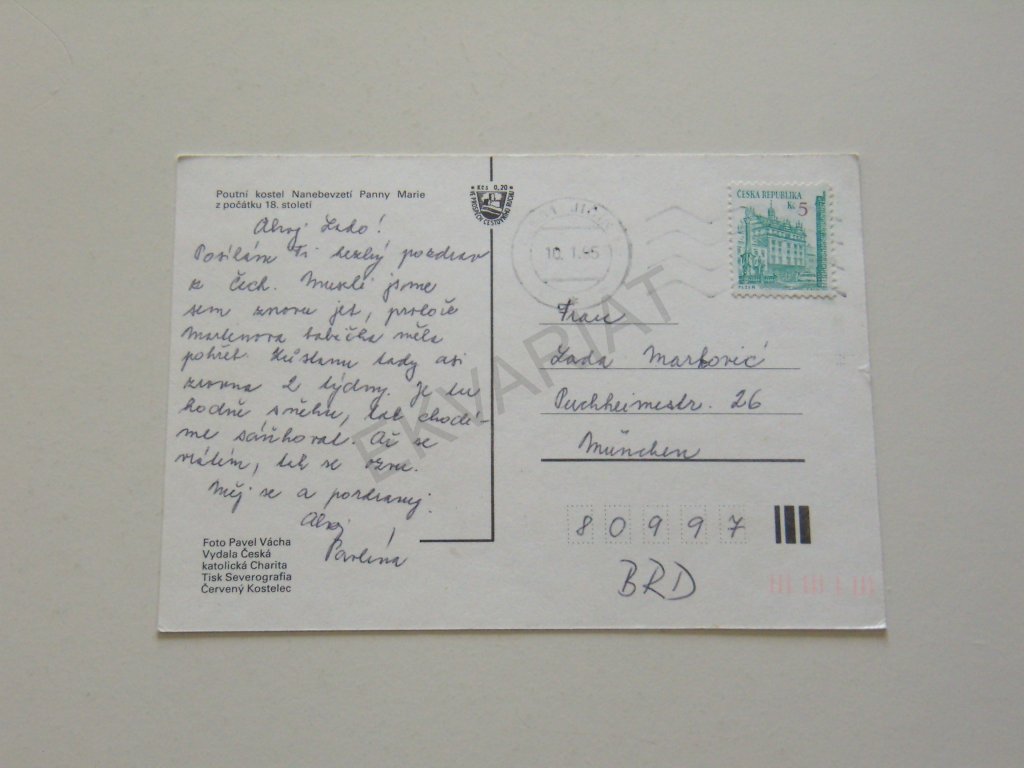 Poutní kostel Nanebevzetí Panny Marie
z počátku 18. století
Ahoj Lado!
Posílám Ti hezký pozdrav
z Čech. Museli jsme
sem znovu jet, protože
Martinova babička měla
pohřeb. Zůstanu tady asi
zrovna 2 týdny. Je tu
hodně sněhu, tak chodí-
me sáňkovat. Až se
vrátím, tak se ozvu.
Měj se a pozdravuj.
Ahoj
Pavlína
Foto Pavel Vácha
Vydala Česká
katolická Charita
Tisk Severografia
Červený Kostelec
Kčs 0,20
VE PROSPĚCH CESTOVNÍHO RUCHU
10. 1. 95
ČESKÁ REPUBLIKA
Kč 5
PLZEŇ
Frau
Lada Marković
Puchheimestr. 26
München
80997
BRD
EKVARIAT